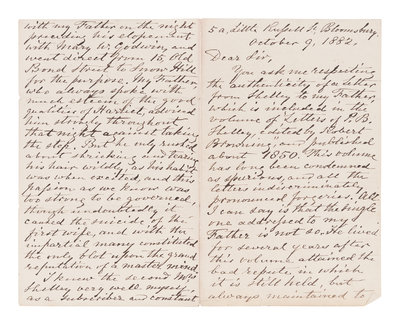 5 a, Little Russell St, Bloomsbury
October 9, 1882.
Dear Sir,
You ask me respecting
the authenticity of a letter
from Shelley to my Father,
which is included in the
volume of Letters of P. B.
Shelley, edited by Robert
Browning, and published
about 1850. This volume
has long been condemned
as spurious, and all the
letters indiscriminately
pronounced forgeries. All
I can say is that the single
one addressed to my
Father is not so. He lived
for several years after
this volume attained the
bad repute, in which
it is still held, but
always maintained to
with my Father in the night
preceding his elopement
with Mary W. Godwin, and
went direct from 15, Old
Bond Street to Snow Hill
for the purpose. My Father,
who always spoke with
much esteem of the good
qualities of Harriet, advised
him strongly throughout
that night against taking
the step. But he only rushed
about shrieking and tearing
his hair wildly, as his habit
was when excited, and his
passion as we know was
too strong to be governed,
though undoubtedly it
caused the suicide of the
first wife, and with the
impartial many constituted
the only blot upon the grand
reputation of a master mind.
I knew the second Mrs
Shelley very well myself,
as a subscriber and constant